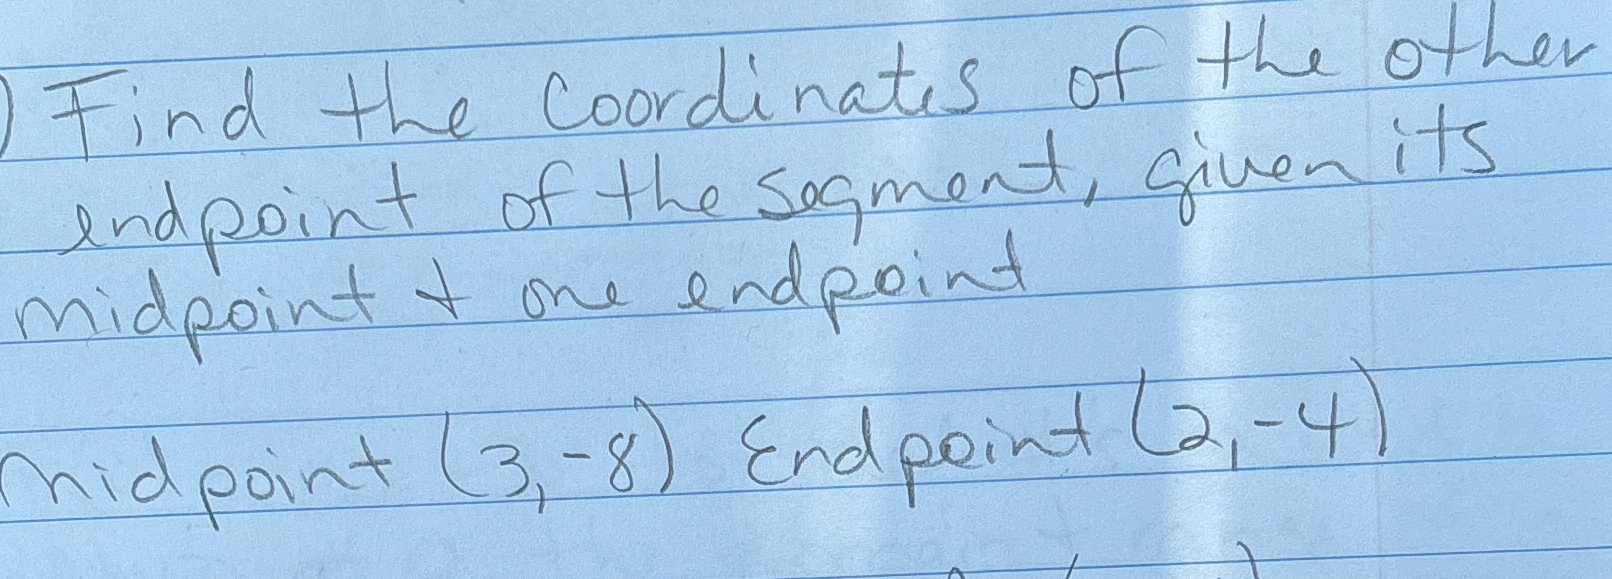 ) Find the Coordinates of the other
endpoint of the segment, given its
midpoint & one endpoint
Midpoint (3,-8) Endpoint (2,-4)